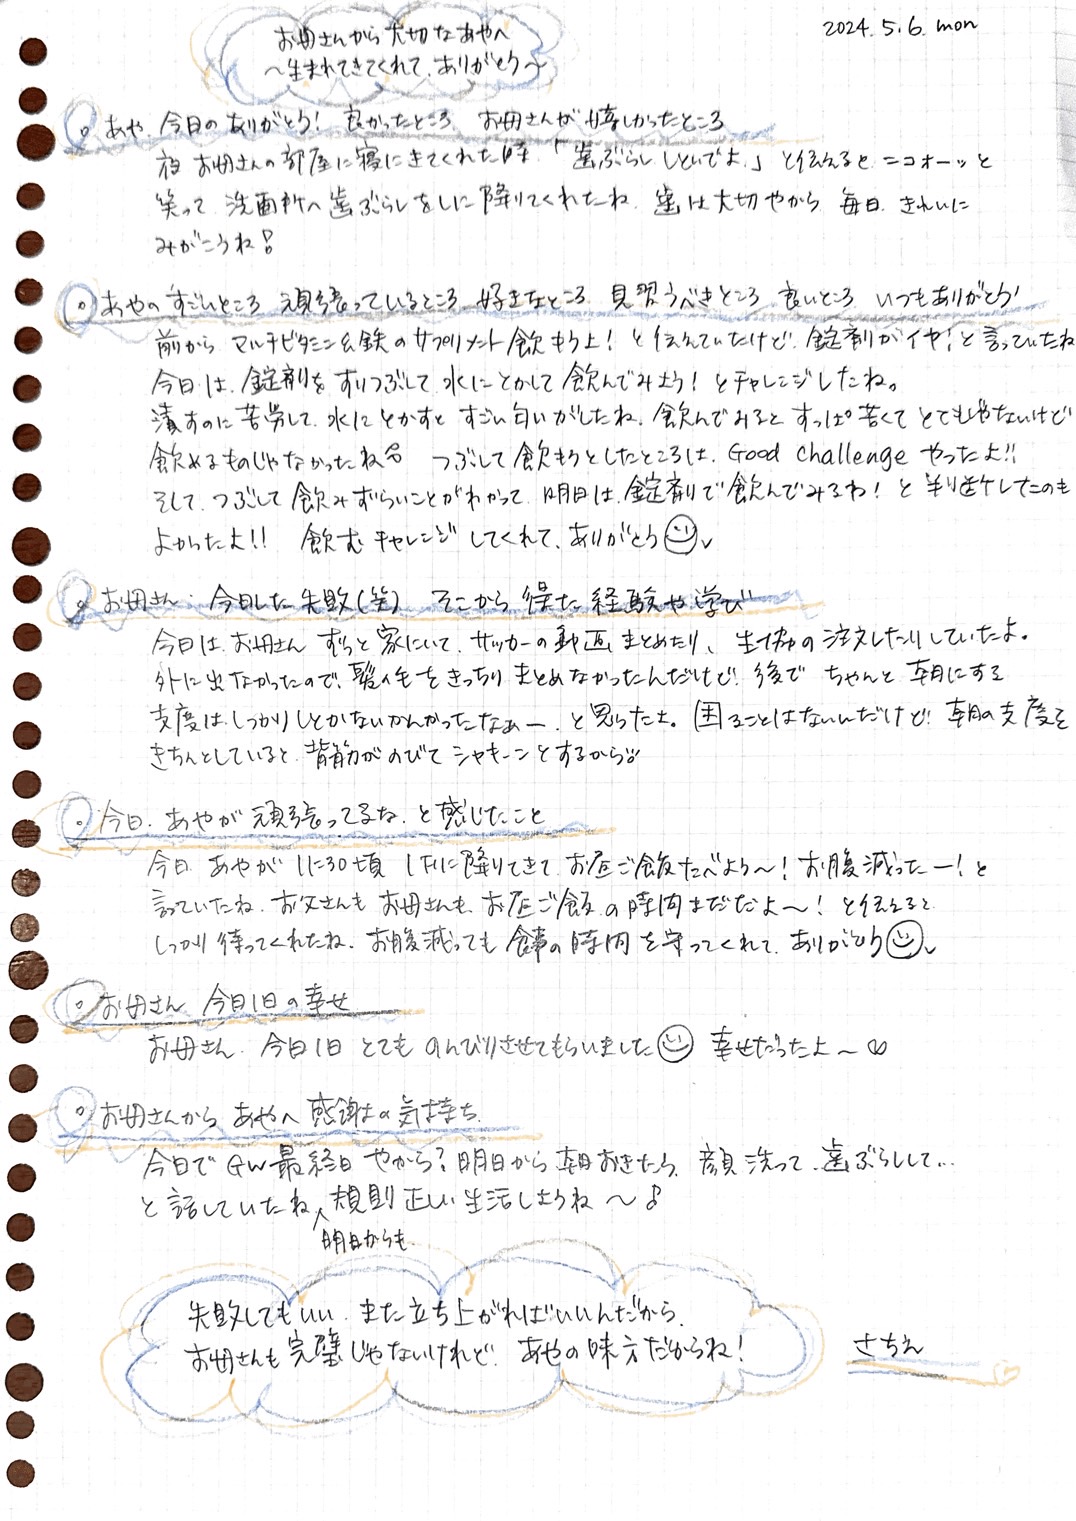 2024. 5. 6. mon
お母さんから大切なあやへ
～生まれてきてくれて、ありがとう～
あや、今日のありがとう！ 良かったところ お母さんが嬉しかったところ
夜 お母さんの部屋に寝にきてくれた時、「歯ぶらし しといでよ。」と伝えると ニコォーッと
笑って、洗面所へ歯ぶらしをしに降りてくれたね。歯は大切やから 毎日 きれいに
みがこうね!
あやの すごいところ 頑張っているところ 好きなところ 見習うべきところ 良いところ いつもありがとう!
前から マルチビタミン&鉄のサプリメント飲もうよ！と伝えていたけど、錠剤がイヤ！と言っていたね
今日は、錠剤を すりつぶして 水にとかして 飲んでみよう！とチャレンジしたね。
潰すのに苦労して、水に とかすと すごい匂いがしたね、飲んでみると すっぱ苦くて とてもじゃないけど
飲めるものじゃなかったね つぶして飲もうとしたところは、Good challenge やったよ!!
そして、つぶして 飲みずらいことがわかって、明日は、錠剤で飲んでみるわ！と 切り替えしたのも
よかったよ!! 飲む チャレンジ してくれて、ありがとう
お母さん、今日した 失敗(笑) そこから 得た 経験や学び
今日は、お母さん ずっと 家にいて、サッカーの動画 まとめたり、生協の注文したりしていたよ。
外に出なかったので、髪の毛をきっちり まとめなかったんだけど、後で ちゃんと 朝にする
支度は しっかりしとかないかんかったなぁー、と思ったよ。困ることはないんだけど、朝の支度を
きちんとしていると、背筋がのびて シャキーンとするから
今日、あやが 頑張ってるな、と感じたこと
今日 あやが 11:30頃 1Fに降りてきて お昼ご飯たべよう～！お腹減ったー！と
言っていたね、お父さんも お母さんも、お昼ご飯の時間まだだよ～！と伝えると
しっかり 待ってくれたね、お腹減っても 食事の時間を守ってくれて、ありがとう
お母さん 今日1日の幸せ
お母さん、今日1日 とても のんびりさせてもらいました 幸せだったよ～♡
お母さんから あやへ 感謝の気持ち
今日で GW最終日 やから? 明日から 朝おきたら、顔洗って、歯ぶらしして...
と 話していたね、規則 正しい 生活しようね ～♪
明日からも
失敗してもいい、また立ち上がればいいんだから、
お母さんも 完璧じゃないけれど、あやの味方だからね！
さちえ